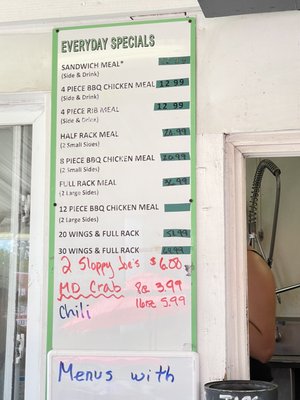 EVERYDAY SPECIALS
SANDWICH MEAL*
(Side & Drink)
4 PIECE BBQ CHICKEN MEAL 12.99
(Side & Drink)
4 PIECE RIB MEAL 12.99
(Side & Drink)
HALF RACK MEAL
(2 Small Sides)
8 PIECE BBQ CHICKEN MEAL 20.99
(2 Small Sides)
FULL RACK MEAL
(2 Large Sides)
12 PIECE BBQ CHICKEN MEAL
(2 Large Sides)
20 WINGS & FULL RACK
30 WINGS & FULL RACK
2 Sloppy Joe's $6.00
MD Crab 8oz 3.99
Chili 16oz 5.99
Menus with